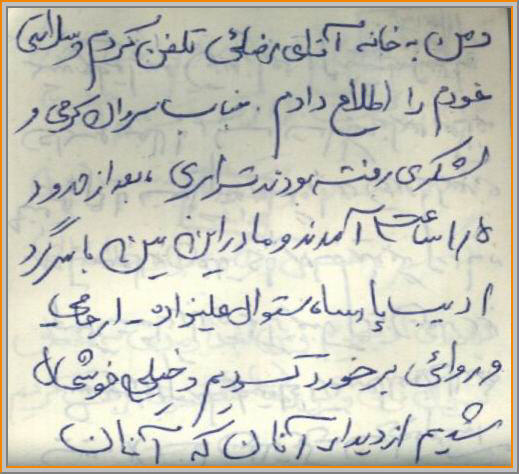 و من به خانه آقای رضائی تلفن کردم و سلامتی
خودم را اطلاع دادم. جناب سروان کرمی و
لشکری رفته بودند تدارک، بعد از حدود
۱/۵ ساعت آمدند و ما در این بین با سرگرد
ادیب پارسا، ستوان علیزاده -
و روائی برخورد کردیم و خیلی خوشحال
شدیم از دیدار آنان که آنان